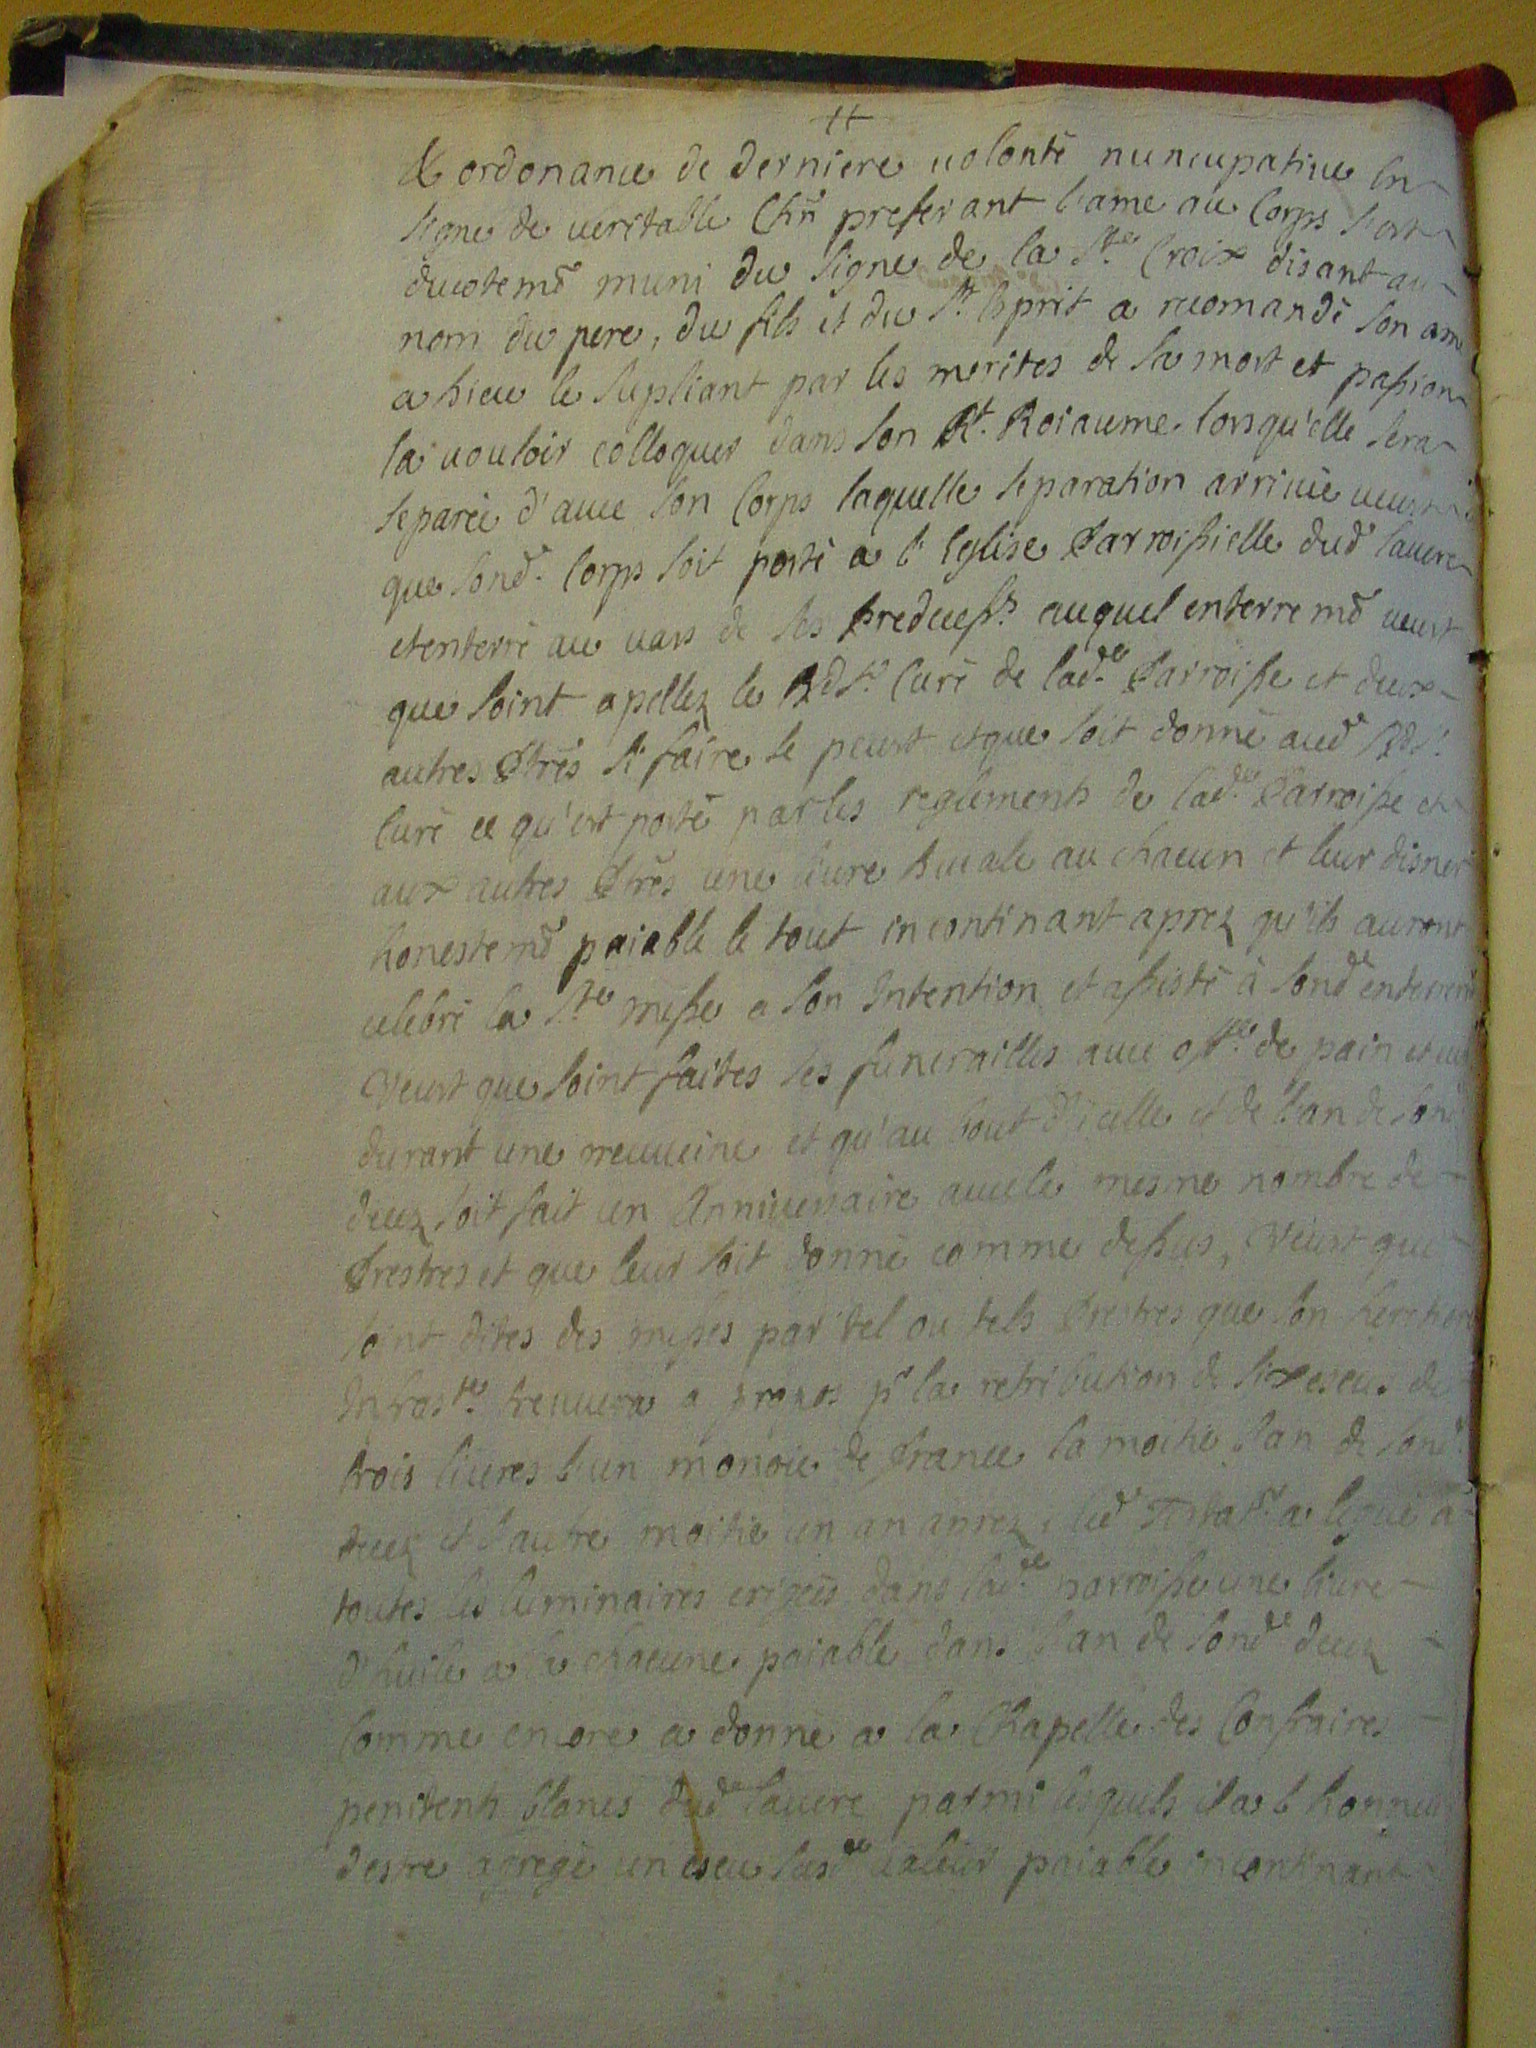 & ordonance de derniere volonté nuncupative En
signe de veritable Chñ preferant l'ame au Corps s'est
devotemt̃ muni du signe de la Ste Croix disant au
nom du pere, du fils et du St Esprit a recomandé son ame
a Dieu le supliant par les merites de sa mort et passion
la vouloir colloquer dans son St. Roiaume lorsqu'elle sera
separée d'avec son Corps laquelle separation arrivée veut
que sond. Corps soit porté a l'Eglise Parroissielle dud Lavere
et enterré au vars de ses predecessrs auquel enterremt̃ veut
que soint apellez le Rd Sr. Curé de lad.e Parroisse et deux
autres Ptrẽs si faire se peut et que soit donné aud Rd Sr.
Curé ce qu'est porté par les reglements de lad.e Parroisse et
aux autres Ptrẽs une livre ducale au chacun et leur disner
honestemt̃ paiable le tout incontinant aprez qu'ils auront
celebré la Ste messe a son Intention et assisté à sond enterremt̃
Veut que soint faites ses funerailles avec offe de pain et
durant une neuveine et qu'au bout d'icelle et de l'an de sond
decez soit fait un Anniversaire avec le mesme nombre de
Prestres et que leur soit donné comme dessus, Veut que
soint dites des messes par tel ou tels Prestres que son heretiere
Infraste. treuvera a propos pr la retribution de six escus de
trois livres l'un monoie de france la moitié l'an de sond
decez et l'autre moitié un an aprez, led Testatr. a legué a
toutes les luminaires erigées dans lad.e parroisse une livre
d'huile a la chacune paiable dans l'an de sond decez
Comme encore a donné a la Chapelle des Confraires
penitents blancs dud Lavere parmi lesquels il a l'honneur
d'estre agregé un escu susd.e valeur paiable incontinant